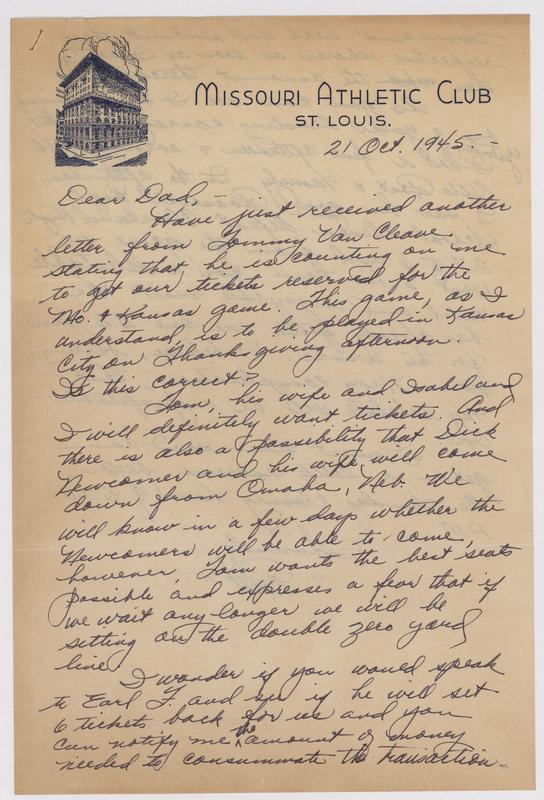 1
MISSOURI ATHLETIC CLUB
ST. LOUIS.
21 Oct. 1945.-
Dear Dad,-
Have just received another
letter from Tommy Van Cleave
stating that he is counting on me
to get our tickets reserved for the
Mo. & Kansas game. This game, as I
understand, is to be played in Kansas
City on Thanksgiving afternoon.
Is this correct?
Tom, his wife and Isabel and
I will definitely want tickets. And
there is also a possibility that Dick
Newcomer and his wife, will come
down from Omaha, Neb. We
will know in a few days whether the
Newcomers will be able to come,
however, Tom wants the best seats
possible and expresses a fear that if
we wait any longer we will be
sitting on the double zero yard
line.
I wonder if you would speak
to Earl F. and see if he will set
6 tickets back for us and you
can notify me the amount of money
needed to consummate the transaction.